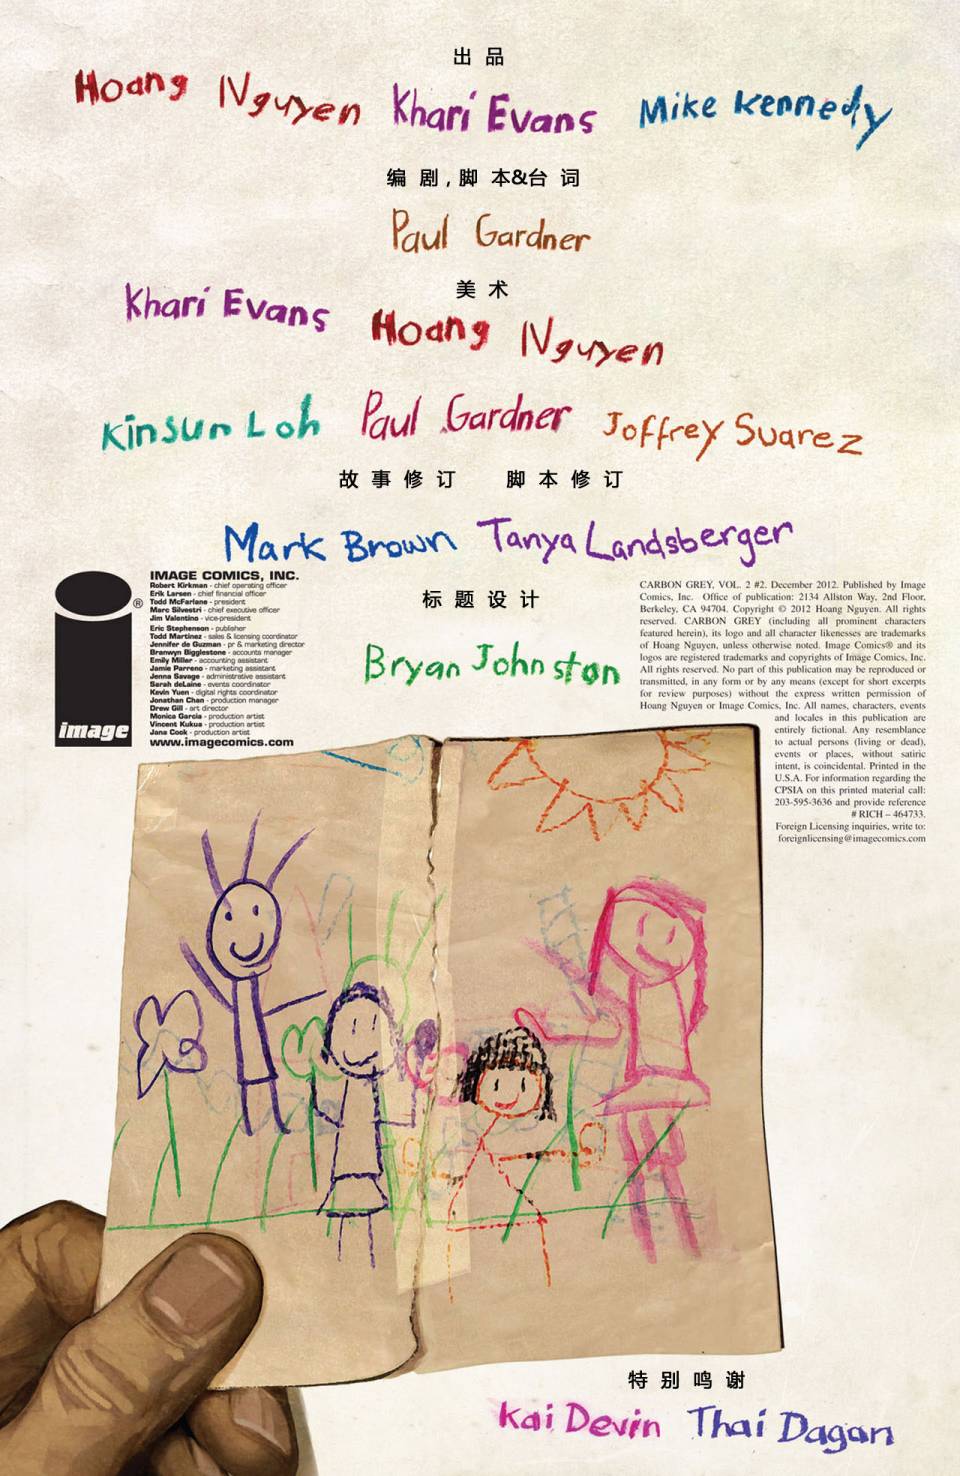 出品
Hoang Nguyen Khari Evans Mike Kennedy
编剧,脚本&台词
Paul Gardner
美术
Khari Evans Hoang Nguyen
Kinsun Loh Paul Gardner Joffrey Suarez
故事修订 脚本修订
Mark Brown Tanya Landsberger
标题设计
Bryan Johnston
image®
IMAGE COMICS, INC.
Robert Kirkman - chief operating officer
Erik Larsen - chief financial officer
Todd McFarlane - president
Marc Silvestri - chief executive officer
Jim Valentino - vice-president
Eric Stephenson - publisher
Todd Martinez - sales & licensing coordinator
Jennifer de Guzman - pr & marketing director
Branwyn Bigglestone - accounts manager
Emily Miller - accounting assistant
Jamie Parreno - marketing assistant
Jenna Savage - administrative assistant
Sarah deLaine - events coordinator
Kevin Yuen - digital rights coordinator
Jonathan Chan - production manager
Drew Gill - art director
Monica Garcia - production artist
Vincent Kukua - production artist
Jana Cook - production artist
www.imagecomics.com
CARBON GREY, VOL. 2 #2. December 2012. Published by Image
Comics, Inc. Office of publication: 2134 Allston Way, 2nd Floor,
Berkeley, CA 94704. Copyright © 2012 Hoang Nguyen. All rights
reserved. CARBON GREY (including all prominent characters
featured herein), its logo and all character likenesses are trademarks
of Hoang Nguyen, unless otherwise noted. Image Comics® and its
logos are registered trademarks and copyrights of Image Comics, Inc.
All rights reserved. No part of this publication may be reproduced or
transmitted, in any form or by any means (except for short excerpts
for review purposes) without the express written permission of
Hoang Nguyen or Image Comics, Inc. All names, characters, events
and locales in this publication are
entirely fictional. Any resemblance
to actual persons (living or dead),
events or places, without satiric
intent, is coincidental. Printed in the
U.S.A. For information regarding the
CPSIA on this printed material call:
203-595-3636 and provide reference
# RICH – 464733.
Foreign Licensing inquiries, write to:
foreignlicensing@imagecomics.com
特别鸣谢
Kai Devin Thai Dagan